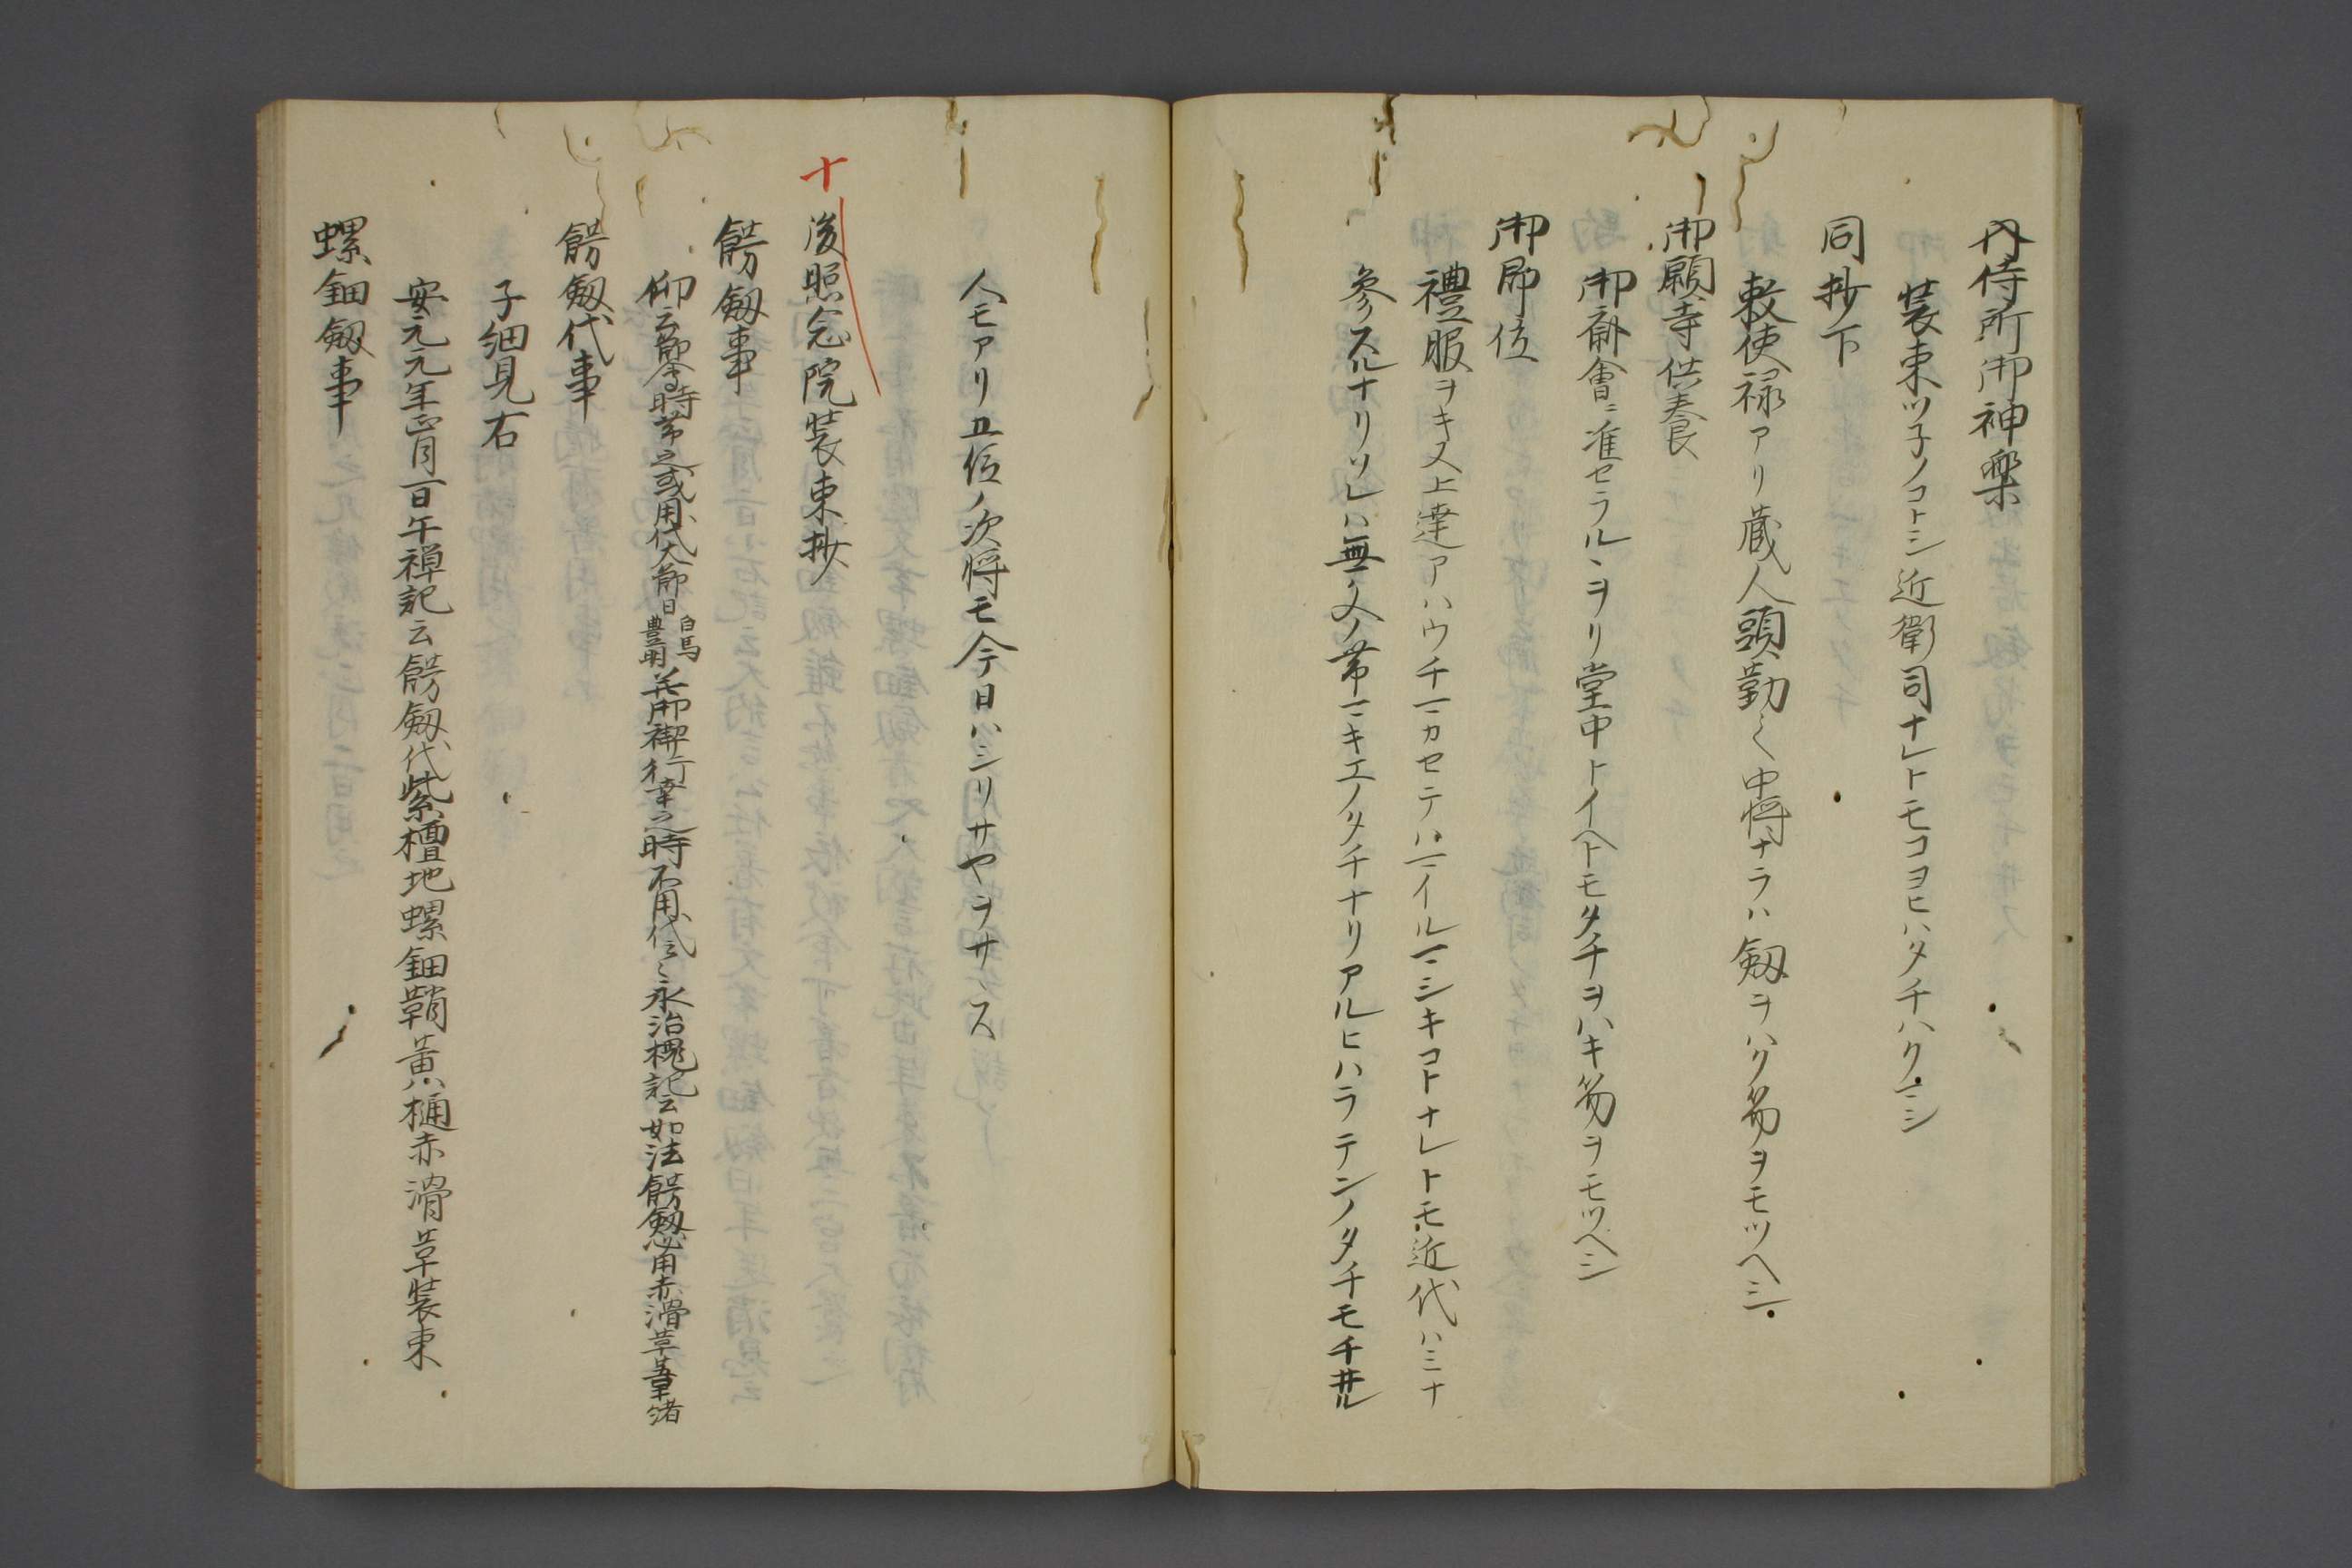 内侍所御神楽
装束ツ子ノコトシ近衛司ナレトモコヨヒハタチハクヘシ
同抄下
勅使禄アリ蔵人頭勤之中将ナラハ釼ヲハク笏ヲモツヘシ
御願寺供養
御斎會ニ准セラルヽヲリ堂中トイヘトモタチヲハキ笏ヲモツヘシ
御即位
禮服ヲキヌ上達アハウチマカセテハマイルマシキコトナレトモ近代ハミナ
参スルナリソレハ無文ノ帯マキエノタチナリアルヒハラテンノタチモチ井ル
人モアリ五位ノ次将モ今日ハシリサヤヲサヽス
十
後照念院装束抄
餝釼事
仰云節會時帯之或用代大節日白馬豊明并御禊行幸之時不用代云々永治槐記云如法餝釼必用赤滑革裏革緒
餝釼代事
子細見右
安元元年正月一日午禅記云餝釼代紫檀地螺鈿鞘黄八樋赤滑革装束
螺鈿釼事